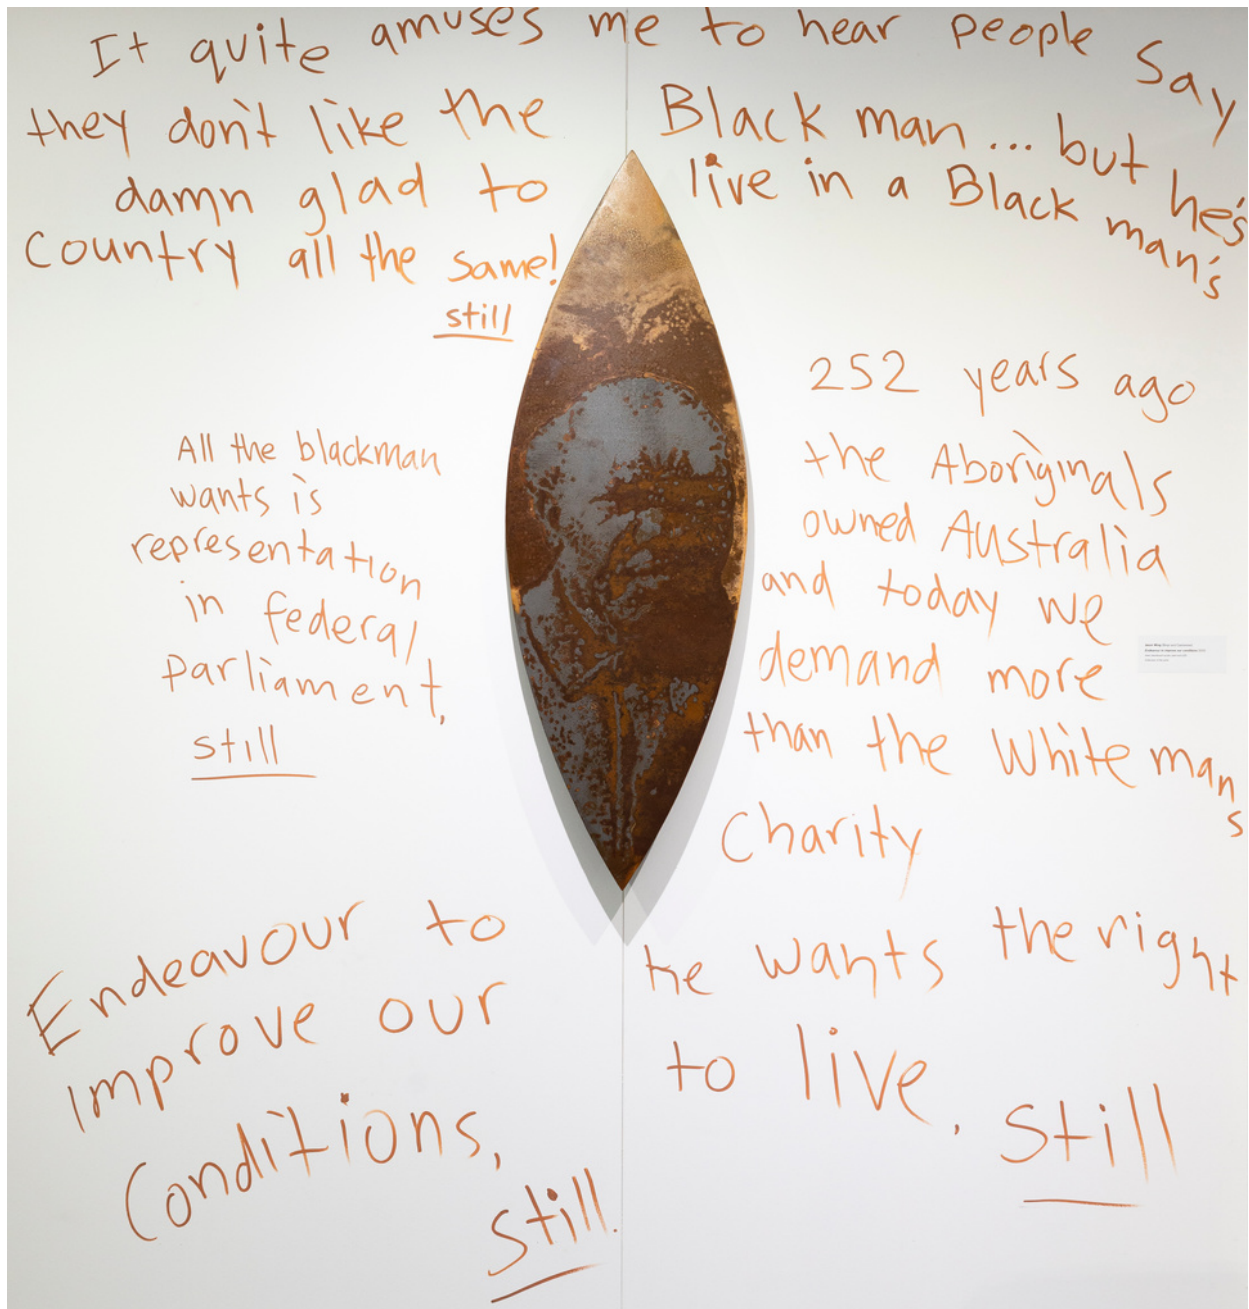 It quite amuses me to hear people say
they don't like the Black man ... but he's
damn glad to live in a Black man's
Country all the same!
still
All the blackman
wants is
representation
in federal
parliament,
still
252 years ago
the Aboriginals
owned Australia
and today we
demand more
than the White mans
Charity
he wants the right
to live, still
Endeavour to
improve our
Conditions,
still.